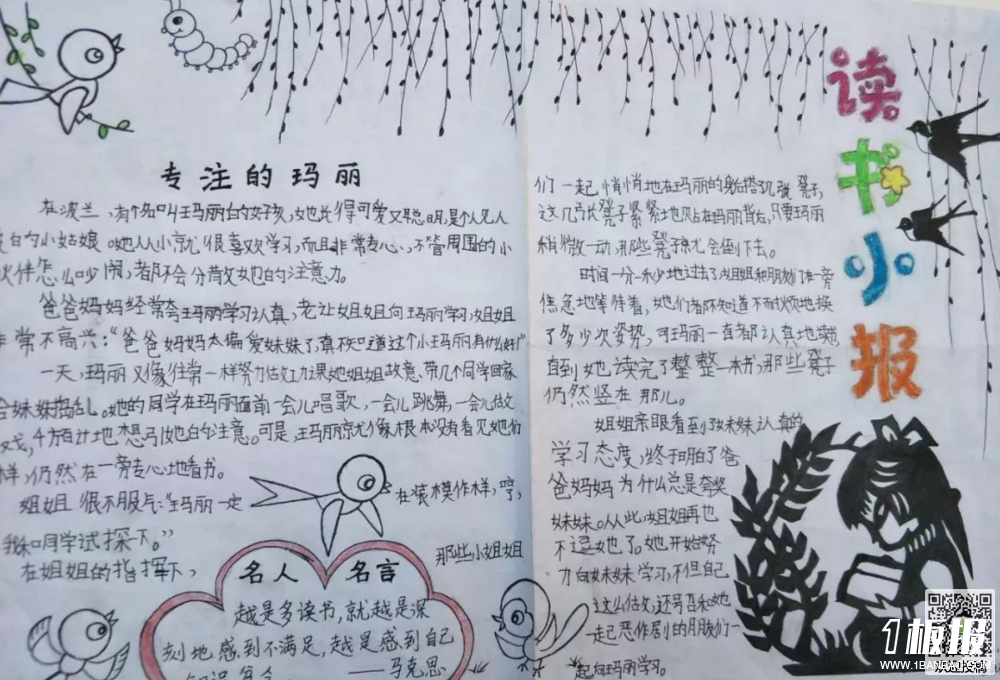 读书小报
专注的玛丽
在波兰,有个名叫玛丽的女孩,她长得可爱又聪明,是个人见人
爱的小姑娘。她从小就很喜欢学习,而且非常专心、不管周围的小
伙伴怎么吵闹,都不会分散她的注意力。
爸爸妈妈经常夸玛丽学习认真,老让姐姐向玛丽学习,姐姐
非常不高兴:“爸爸妈妈太偏爱妹妹了,真不知道这个小玛丽有什么好!”
一天,玛丽又像往常一样努力做功课,她姐姐故意带几个同学回家
给妹妹捣乱。她的同学在玛丽面前一会儿唱歌,一会儿跳舞,一会儿做
戏,千方百计地想引她的注意。可是,玛丽就像根本没有看见她们
样,仍然在一旁专心地看书。
姐姐很不服气:“玛丽一定在装模作样,哼,
我和同学试探下。”
在姐姐的指挥下,那些小姐姐
们一起悄悄地在玛丽的身后搭了几张凳子,
这几张凳子紧紧地贴在玛丽背后,只要玛丽
稍微一动,那些凳子就会倒下去。
时间一分一秒地过去了,姐姐和朋友们在一旁
焦急地等待着,她们都不知道不耐烦地换
了多少次姿势,可玛丽一直都认真地读
直到她读完了整整一本书,那些凳子
仍然竖在那儿。
姐姐亲眼看到了妹妹认真的
学习态度,终于明白了爸
爸妈妈为什么总是夸奖
妹妹。从此,姐姐再也
不逗她了。她开始努
力向妹妹学习,不但自己
这么做,还号召和她
一起恶作剧的朋友们一
起向玛丽学习。
名人名言
越是多读书,就越是深
刻地感到不满足,越是感到自己
——马克思
1板报
WWW.1BANBAO.COM